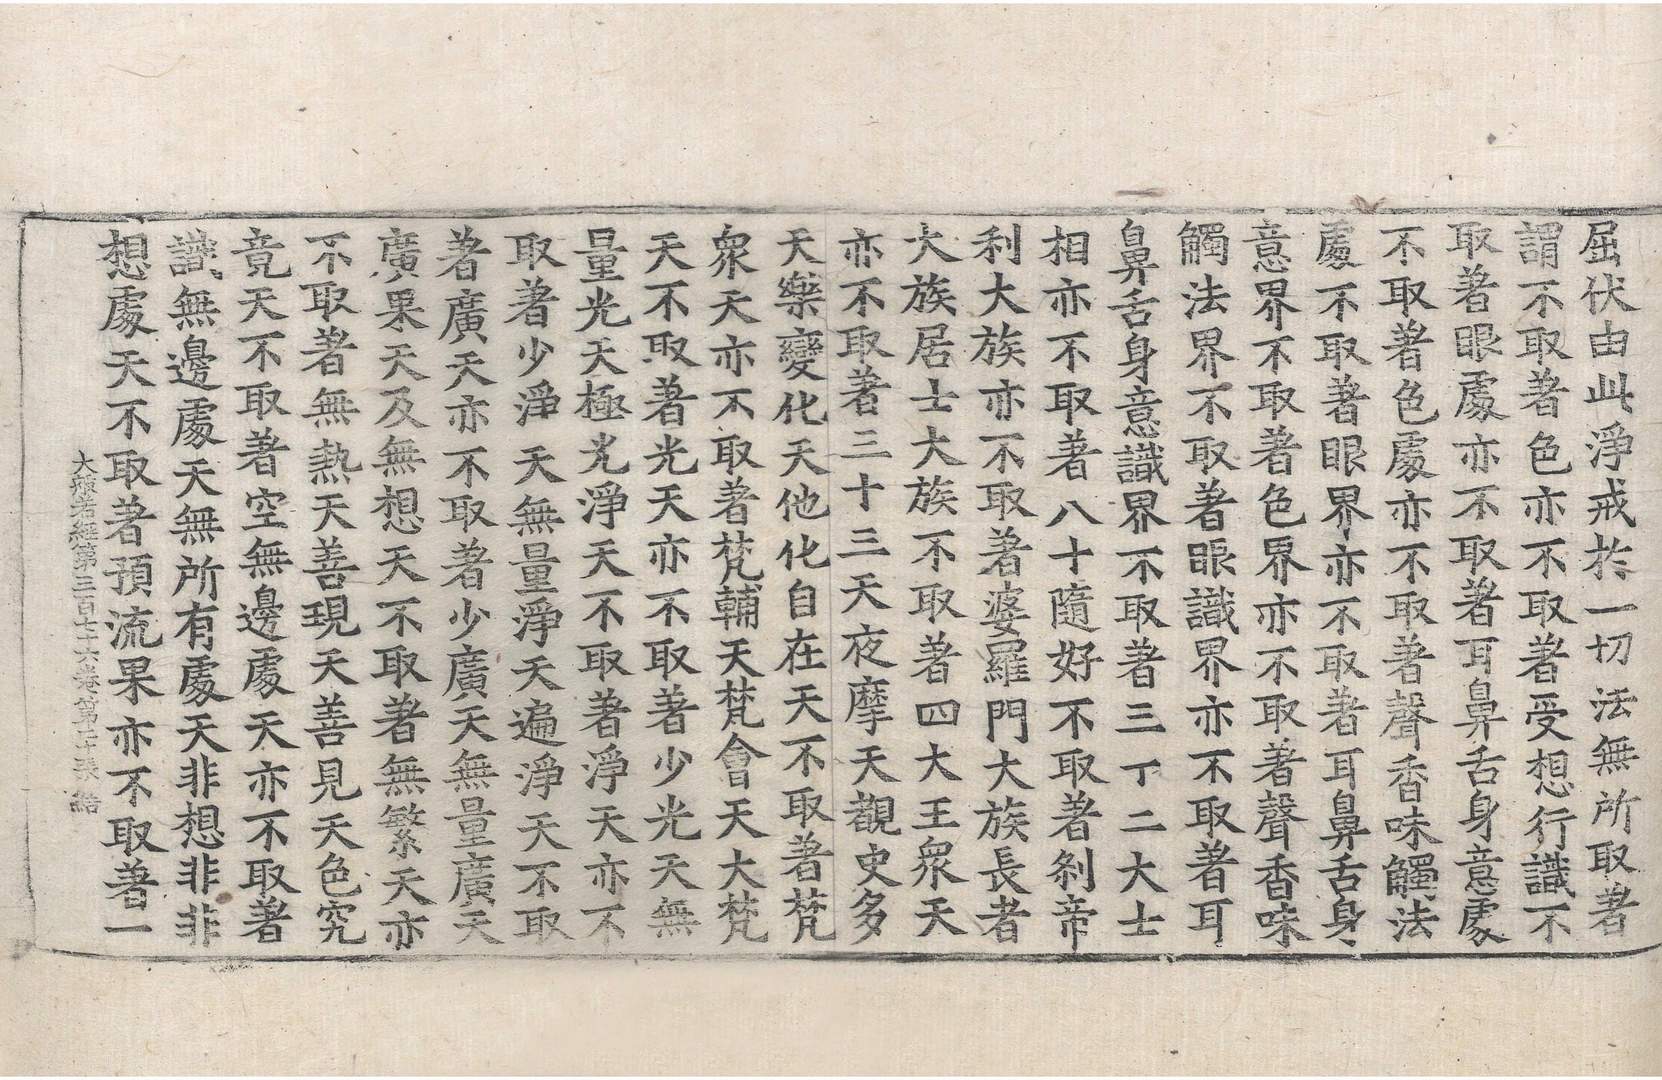 屈伏由此淨戒於一切法無所取著
謂不取著色亦不取著受想行識不
取著眼處亦不取著耳鼻舌身意處
不取著色處亦不取著聲香味觸法
處不取著眼界亦不取著耳鼻舌身
意界不取著色界亦不取著聲香味
觸法界不取著眼識界亦不取著耳
鼻舌身意識界不取著三丁二大士
相亦不取著八十隨好不取著剎帝
利大族亦不取著婆羅門大族長者
大族居士大族不取著四大王眾天
亦不取著三十三天夜摩天覩史多
天樂變化天他化自在天不取著梵
眾天亦不取著梵輔天梵會天大梵
天不取著光天亦不取著少光天無
量光天極光淨天不取著淨天亦不
取著少淨天無量淨天遍淨天不取
著廣天亦不取著少廣天無量廣天
廣果天及無想天不取著無繁天亦
不取著無熱天善現天善見天色究
竟天不取著空無邊處天亦不取著
識無邊處天無所有處天非想非非
想處天不取著預流果亦不取著一
大般若經第三百七十六卷第二十張